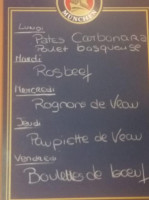 MÜNCHEN
Lundi
Pates Carbonara
Poulet basquaise
Mardi
Rosbeef
Mercredi
Rognons de Veau
Jeudi
Paupiette de Veau
Vendredi
Boulettes de boeuf